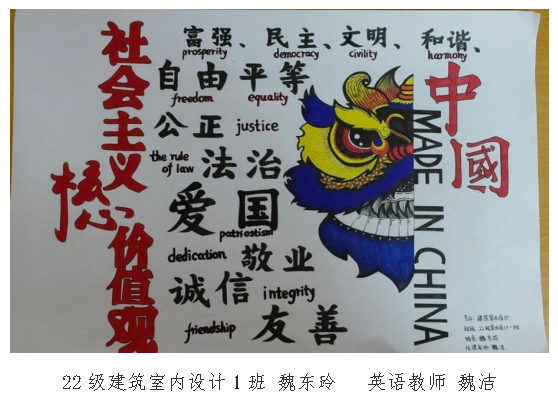 社会主义
核心
价值观
富强、民主、文明、和谐、
prosperity democracy civility harmony
自由 平等
freedom equality
公正 justice
the rule of law 法治
爱国
patriostism
dedication 敬业
诚信 integrity
friendship 友善
中國
MADE IN CHINA
22级建筑室内设计1班 魏东玲 英语教师 魏洁